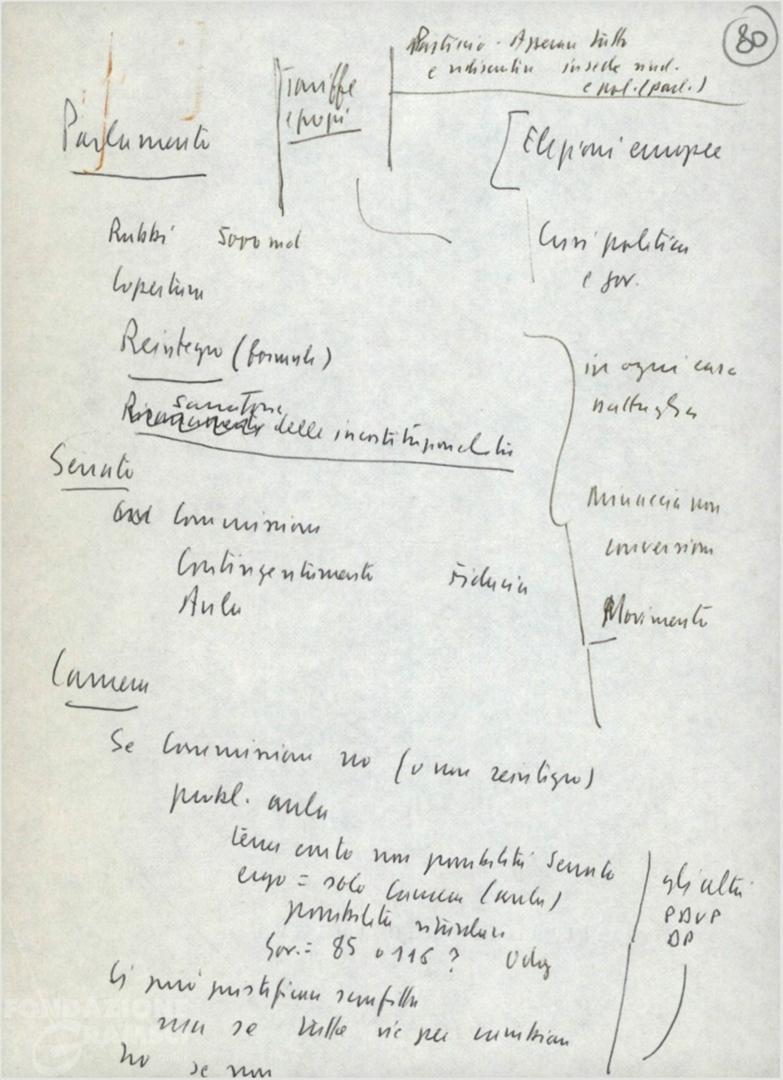 80
Pasticcio - Azzerare tutto
e ridiscutere in sede sind.
e pol. (parl.)
Tariffe
e prezzi
Parlamento
Elezioni europee
Rubbi 5000 md
Crisi politica
e gov.
Copertura
Reintegro (formule)
in ogni caso
battaglia
sanatoria
delle incostituzionalità
Senato
Commissione
Minaccia non
conversione
Contingentamento Fiducia
Aula
Movimento
Camera
Se Commissione no (o non reintegro)
probl. aula
tener conto non possibilità Senato
ergo = solo Camera (aula)
possibilità
Gov. = 85 o 116 ? Odg
gli altri
PDUP
DP
Si può giustificare
ma se tutte vie per cambiare
no se non
FONDAZIONE
GRAMSCI